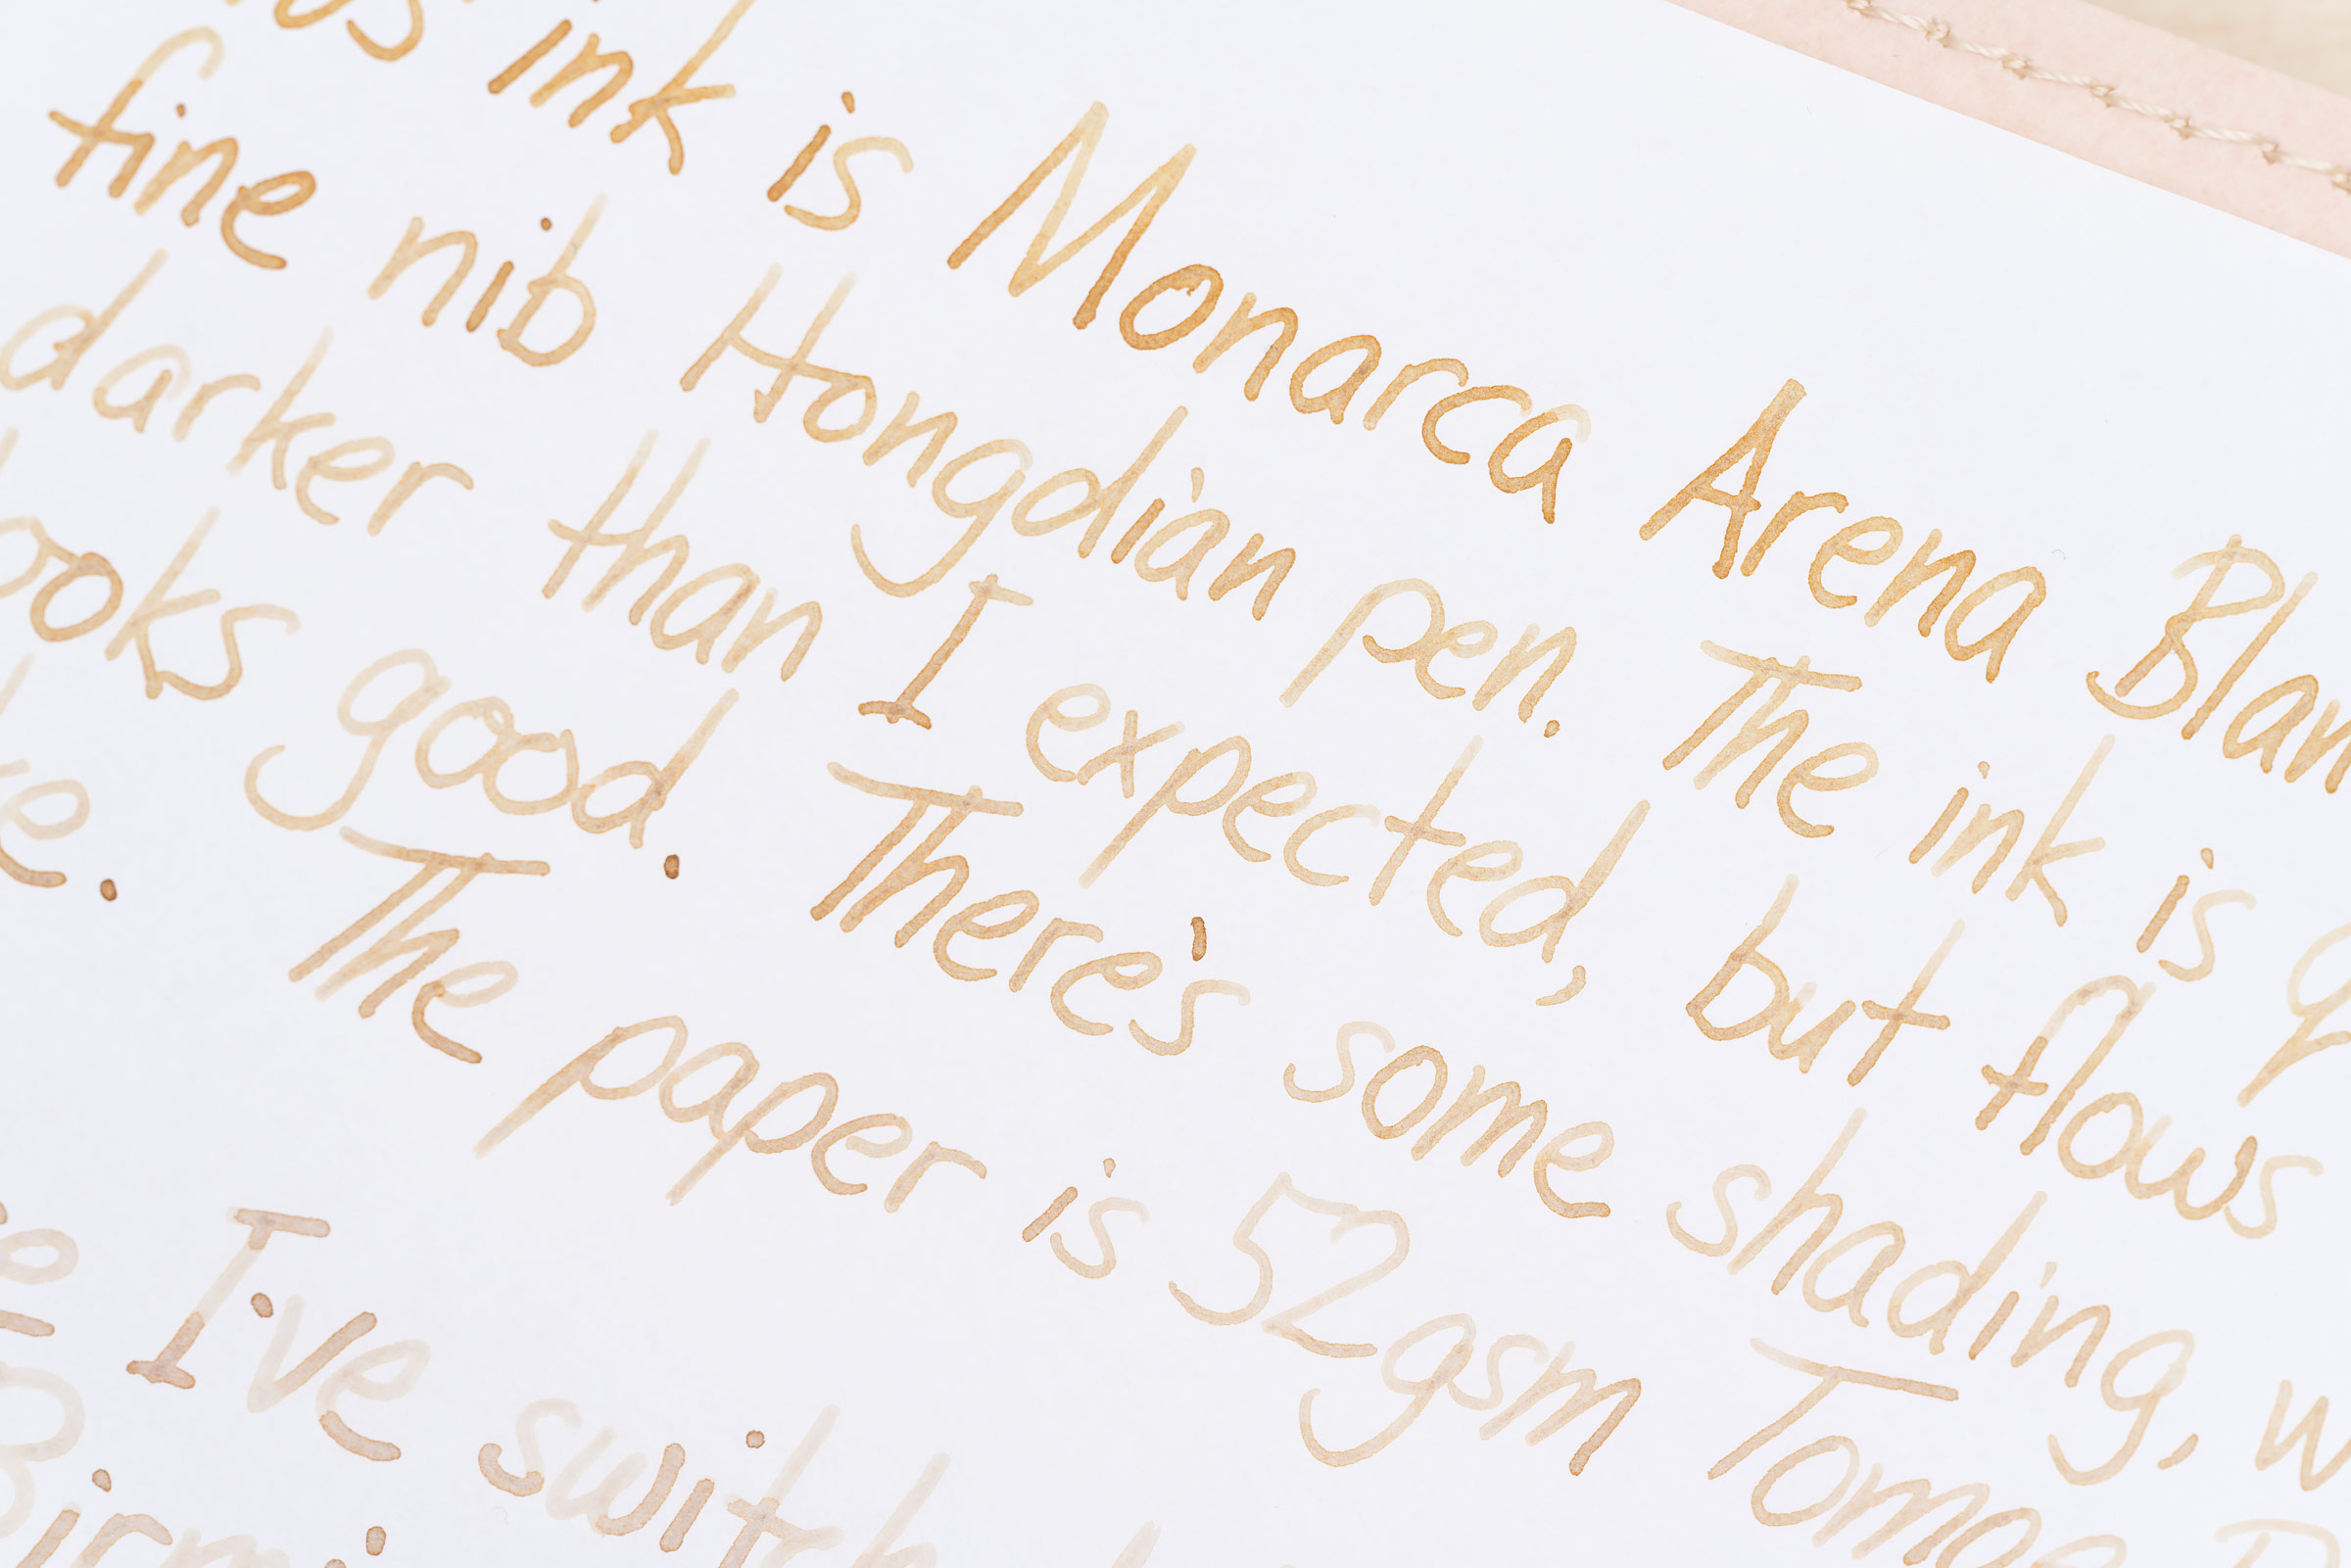 ink is Monarca Arena Blan
fine nib Hongdian pen. The ink is g
darker than I expected, but flows
ooks good. There's some shading, w
e. The paper is 52gsm Tomoe
e I've switch
Birmi